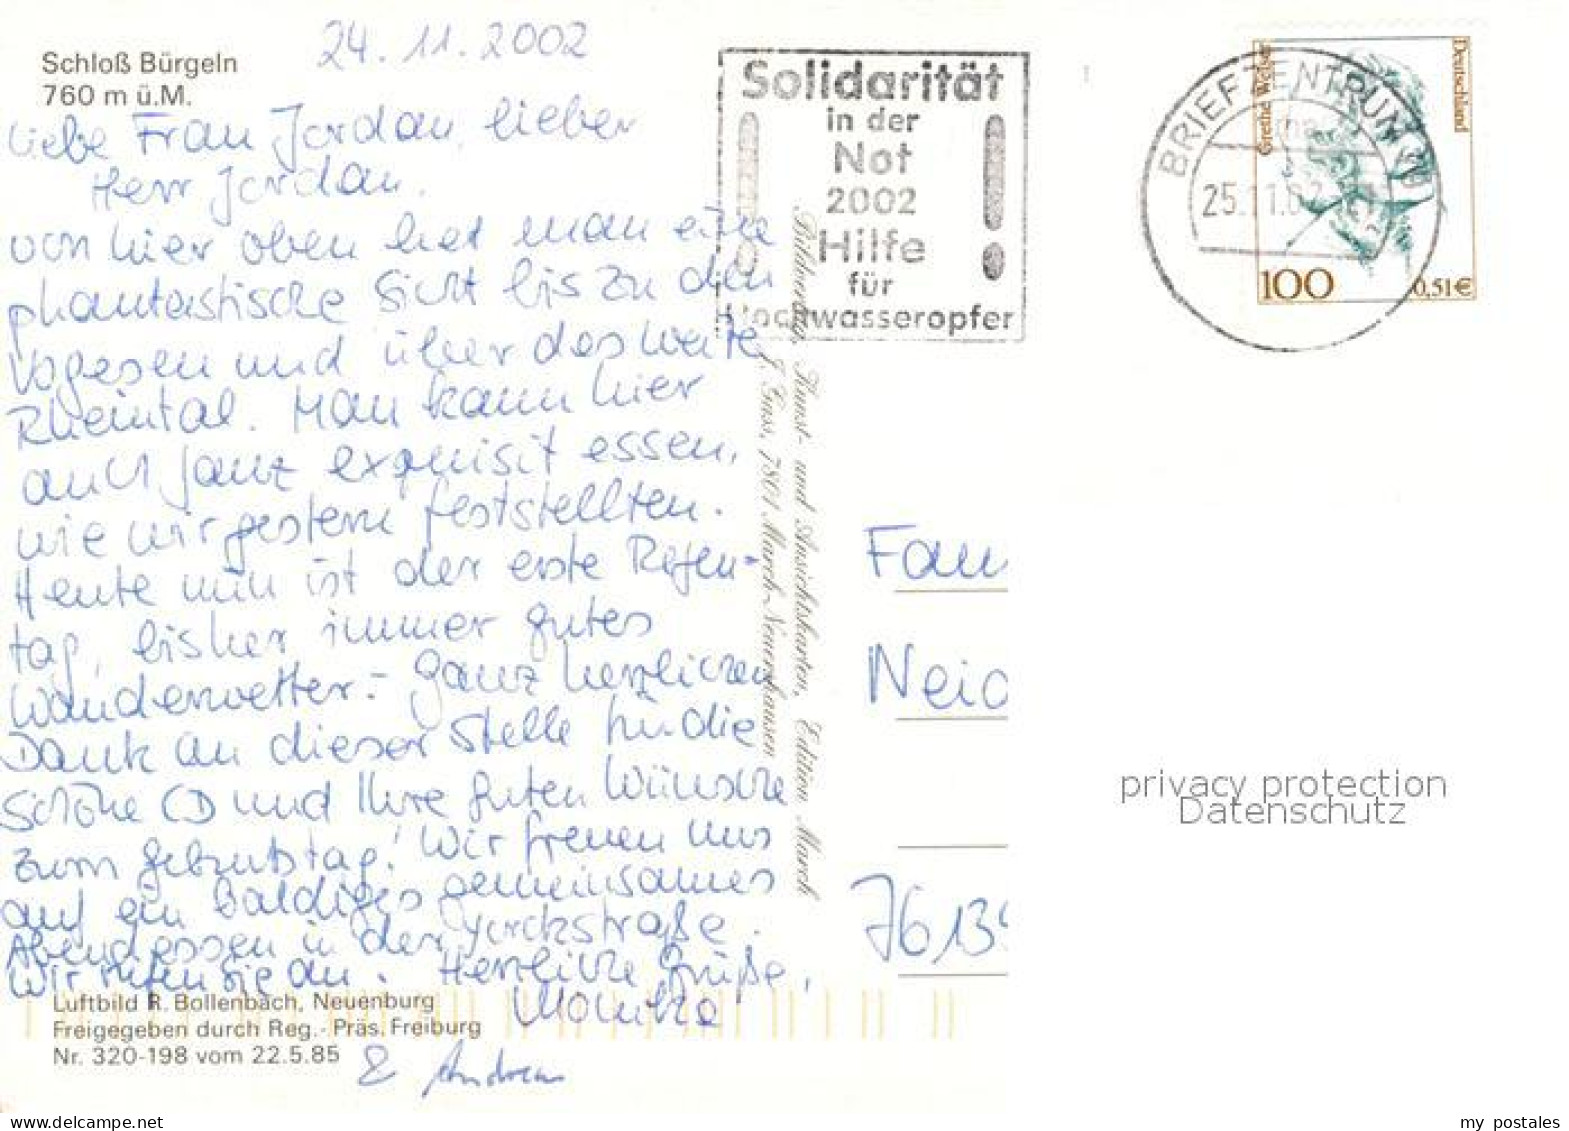 Schloß Bürgeln
760 m ü.M.
24.11.2002
Liebe Frau Jordan, lieber
Herr Jordan.
von hier oben hat man eine
phantastische Sicht bis zu den
Vogesen und über das weite
Rheintal. Man kann hier
auch ganz exquisit essen,
wie wir gestern feststellten.
Heute nun ist der erste Regen-
tag, bisher immer gutes
Wanderwetter.- Ganz herzlichen
Dank an dieser Stelle für die
schöne CD und Ihre guten Wünsche
zum Geburtstag! Wir freuen uns
auf ein baldiges gemeinsames
Abendessen in der Yorckstraße.
Wir rufen Sie an. Herzliche Grüße,
Monika
& Andreas
Luftbild R. Bollenbach, Neuenburg
Freigegeben durch Reg.- Präs. Freiburg
Nr. 320-198 vom 22.5.85
Bildverlag, Kunst- und Ansichtskarten, Edition March
J. Guss, 7801 March-Neuershausen
Solidarität
in der
Not
2002
Hilfe
für
Hochwasseropfer
BRIEFZENTRUM
25.11.02
Grethe Weiser
Deutschland
100
0,51€
Fam
Neid
76139
privacy protection
Datenschutz
my postales